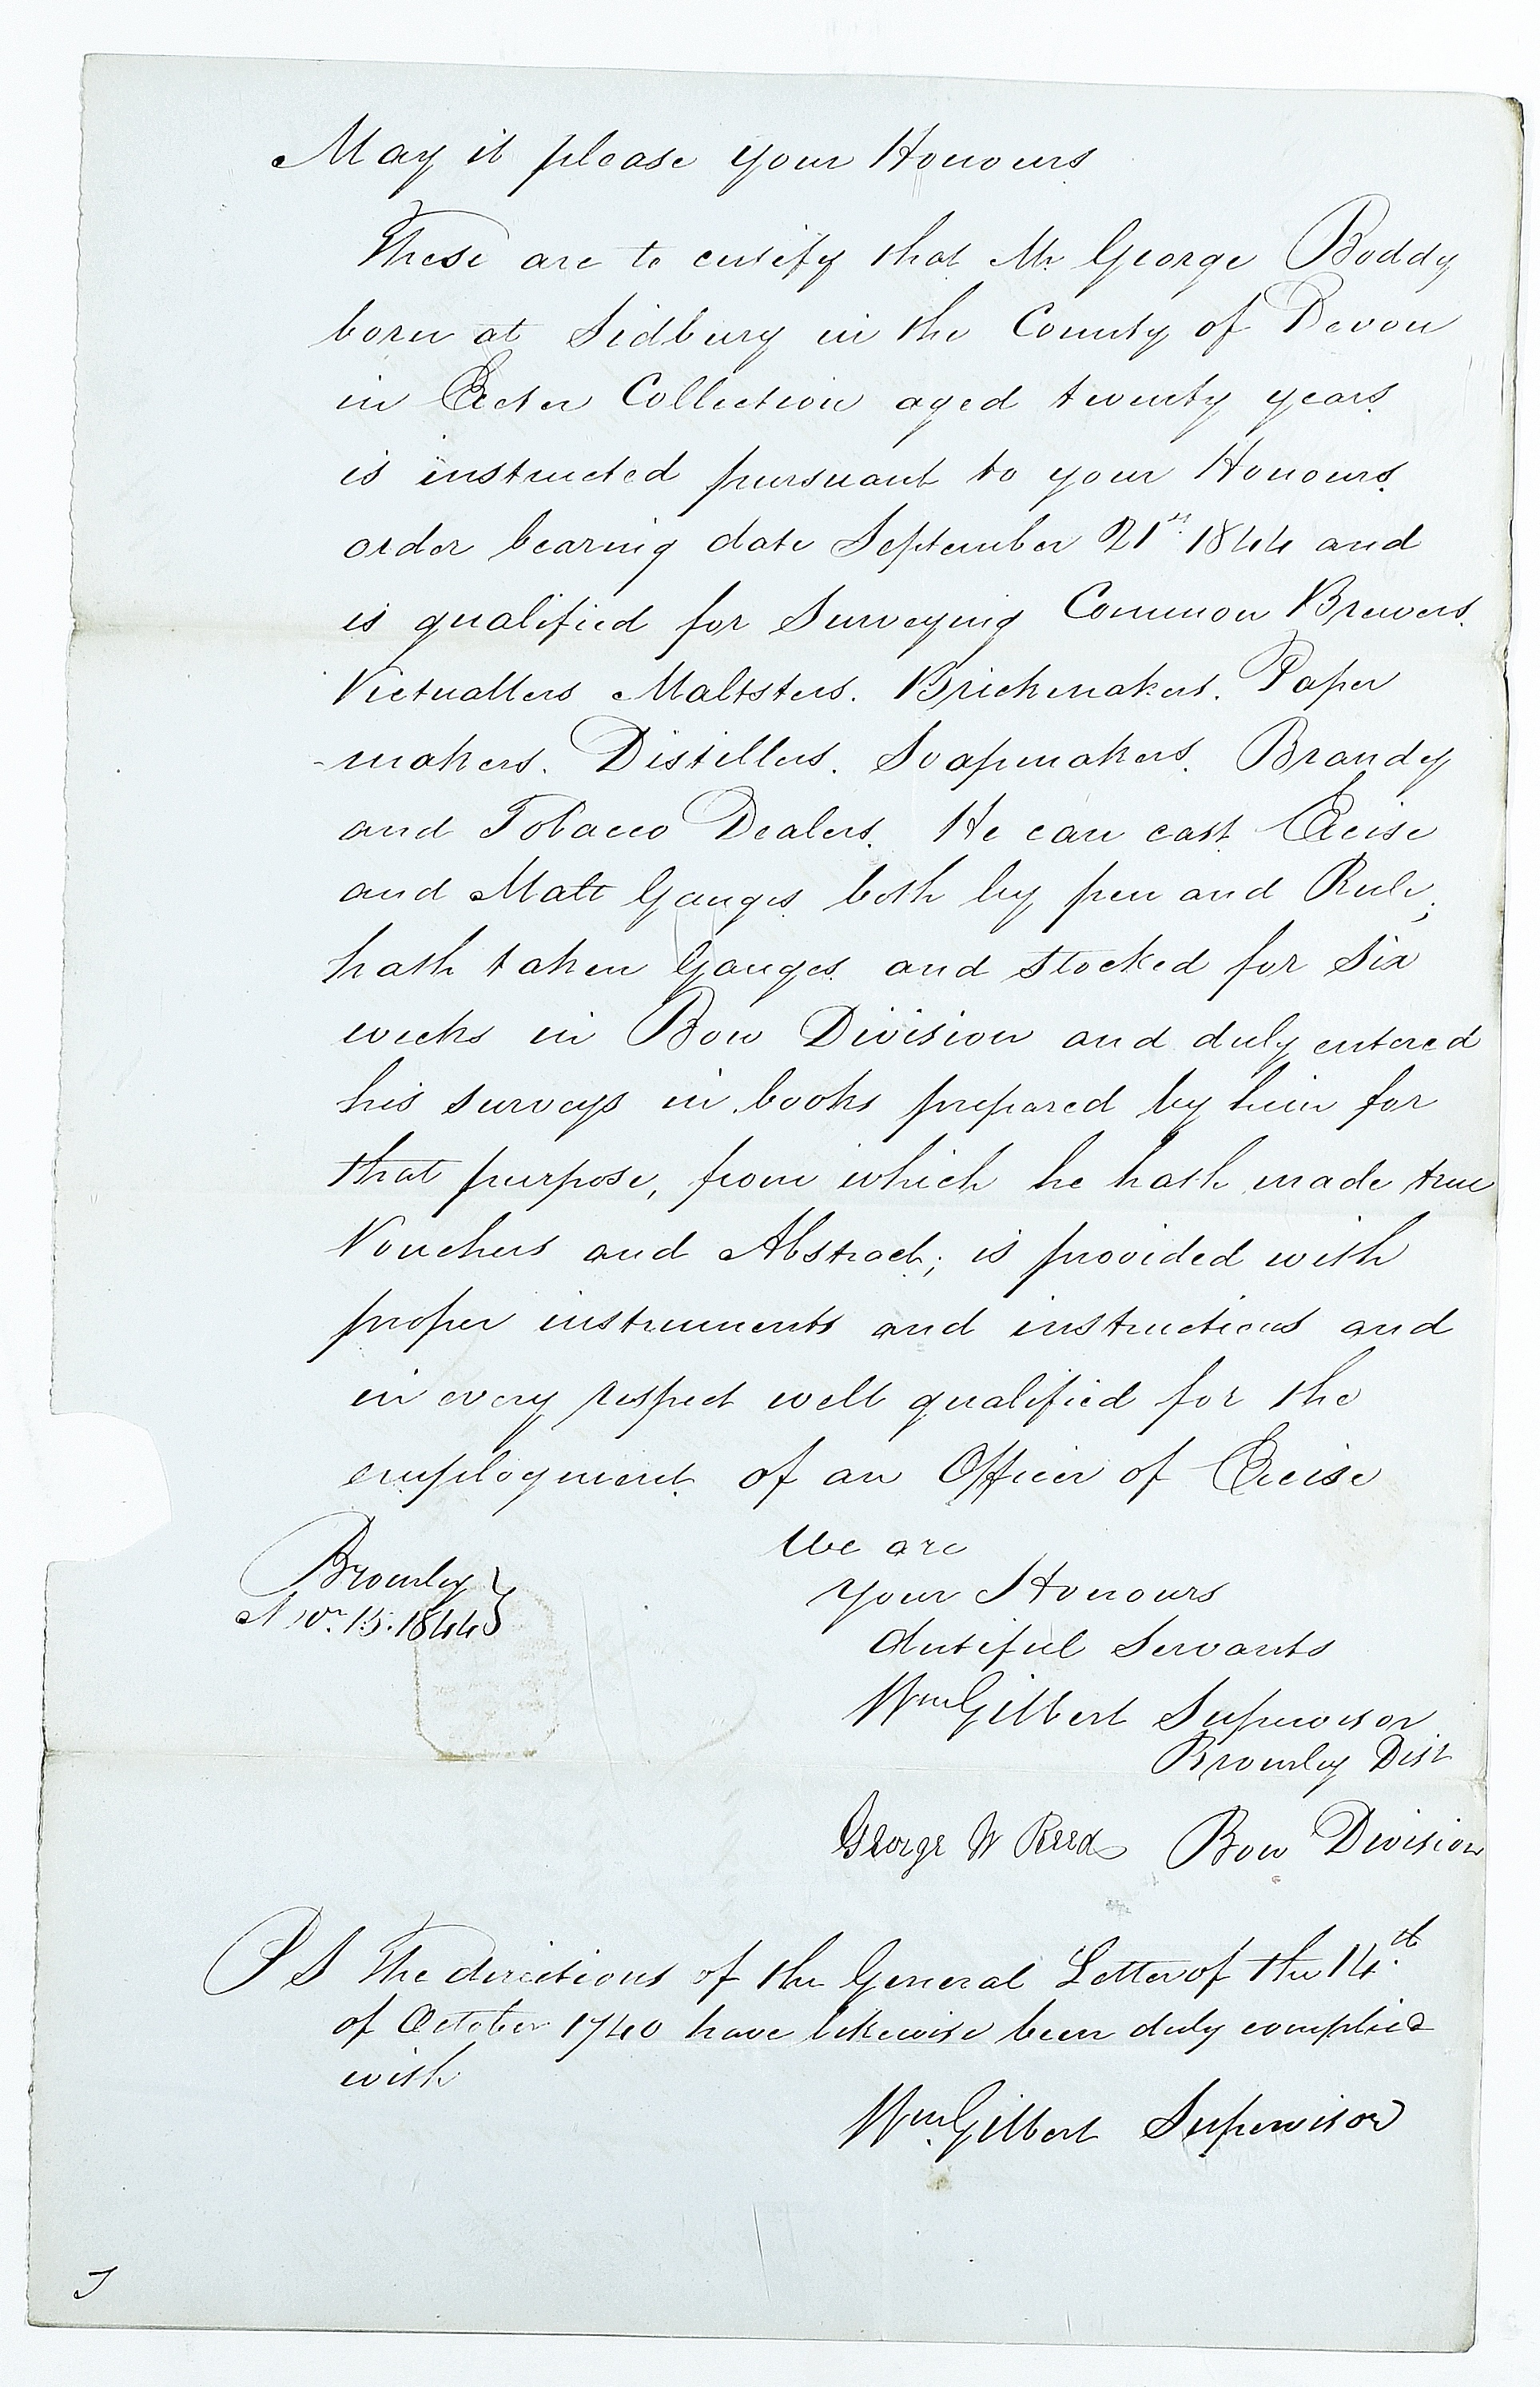 May it please your Honours
These are to certify that Mr George Boddy
born at Sidbury in the County of Devon
in Exeter Collection aged twenty years
is instructed pursuant to your Honours
order bearing date September 21st 1844 and
is qualified for Surveying Common Brewers.
Victuallers Maltsters. Brickmakers. Paper
-makers. Distillers. Soapmakers. Brandy
and Tobacco Dealers. He can cast Excise
and Malt Gauges both by pen and Rule;
hath taken Gauges and stocked for six
weeks in Bow Division and duly entered
his surveys in books prepared by him for
that purpose, from which he hath made true
Vouchers and Abstract; is provided with
proper instruments and instructions and
in every respect well qualified for the
employment of an Officer of Excise
We are
your Honours
dutiful Servants
Bromley
Novr. 15. 1844
Wm Gilbert Supervisor
Bromley Dist
George W Reed Bow Division
PS The directions of the General Letter of the 14th
of October 1740 have likewise been duly complied
with
Wm Gilbert Supervisor